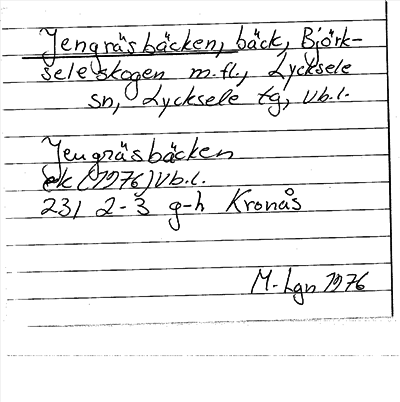 Jengräsbäcken, bäck, Björk-
seleskogen m.fl., Lycksele
sn, Lycksele tg, Vb.l.
Jengräsbäcken
ek (1976) Vb.l.
23I 2-3 g-h Kronås
M-Lgn 1976